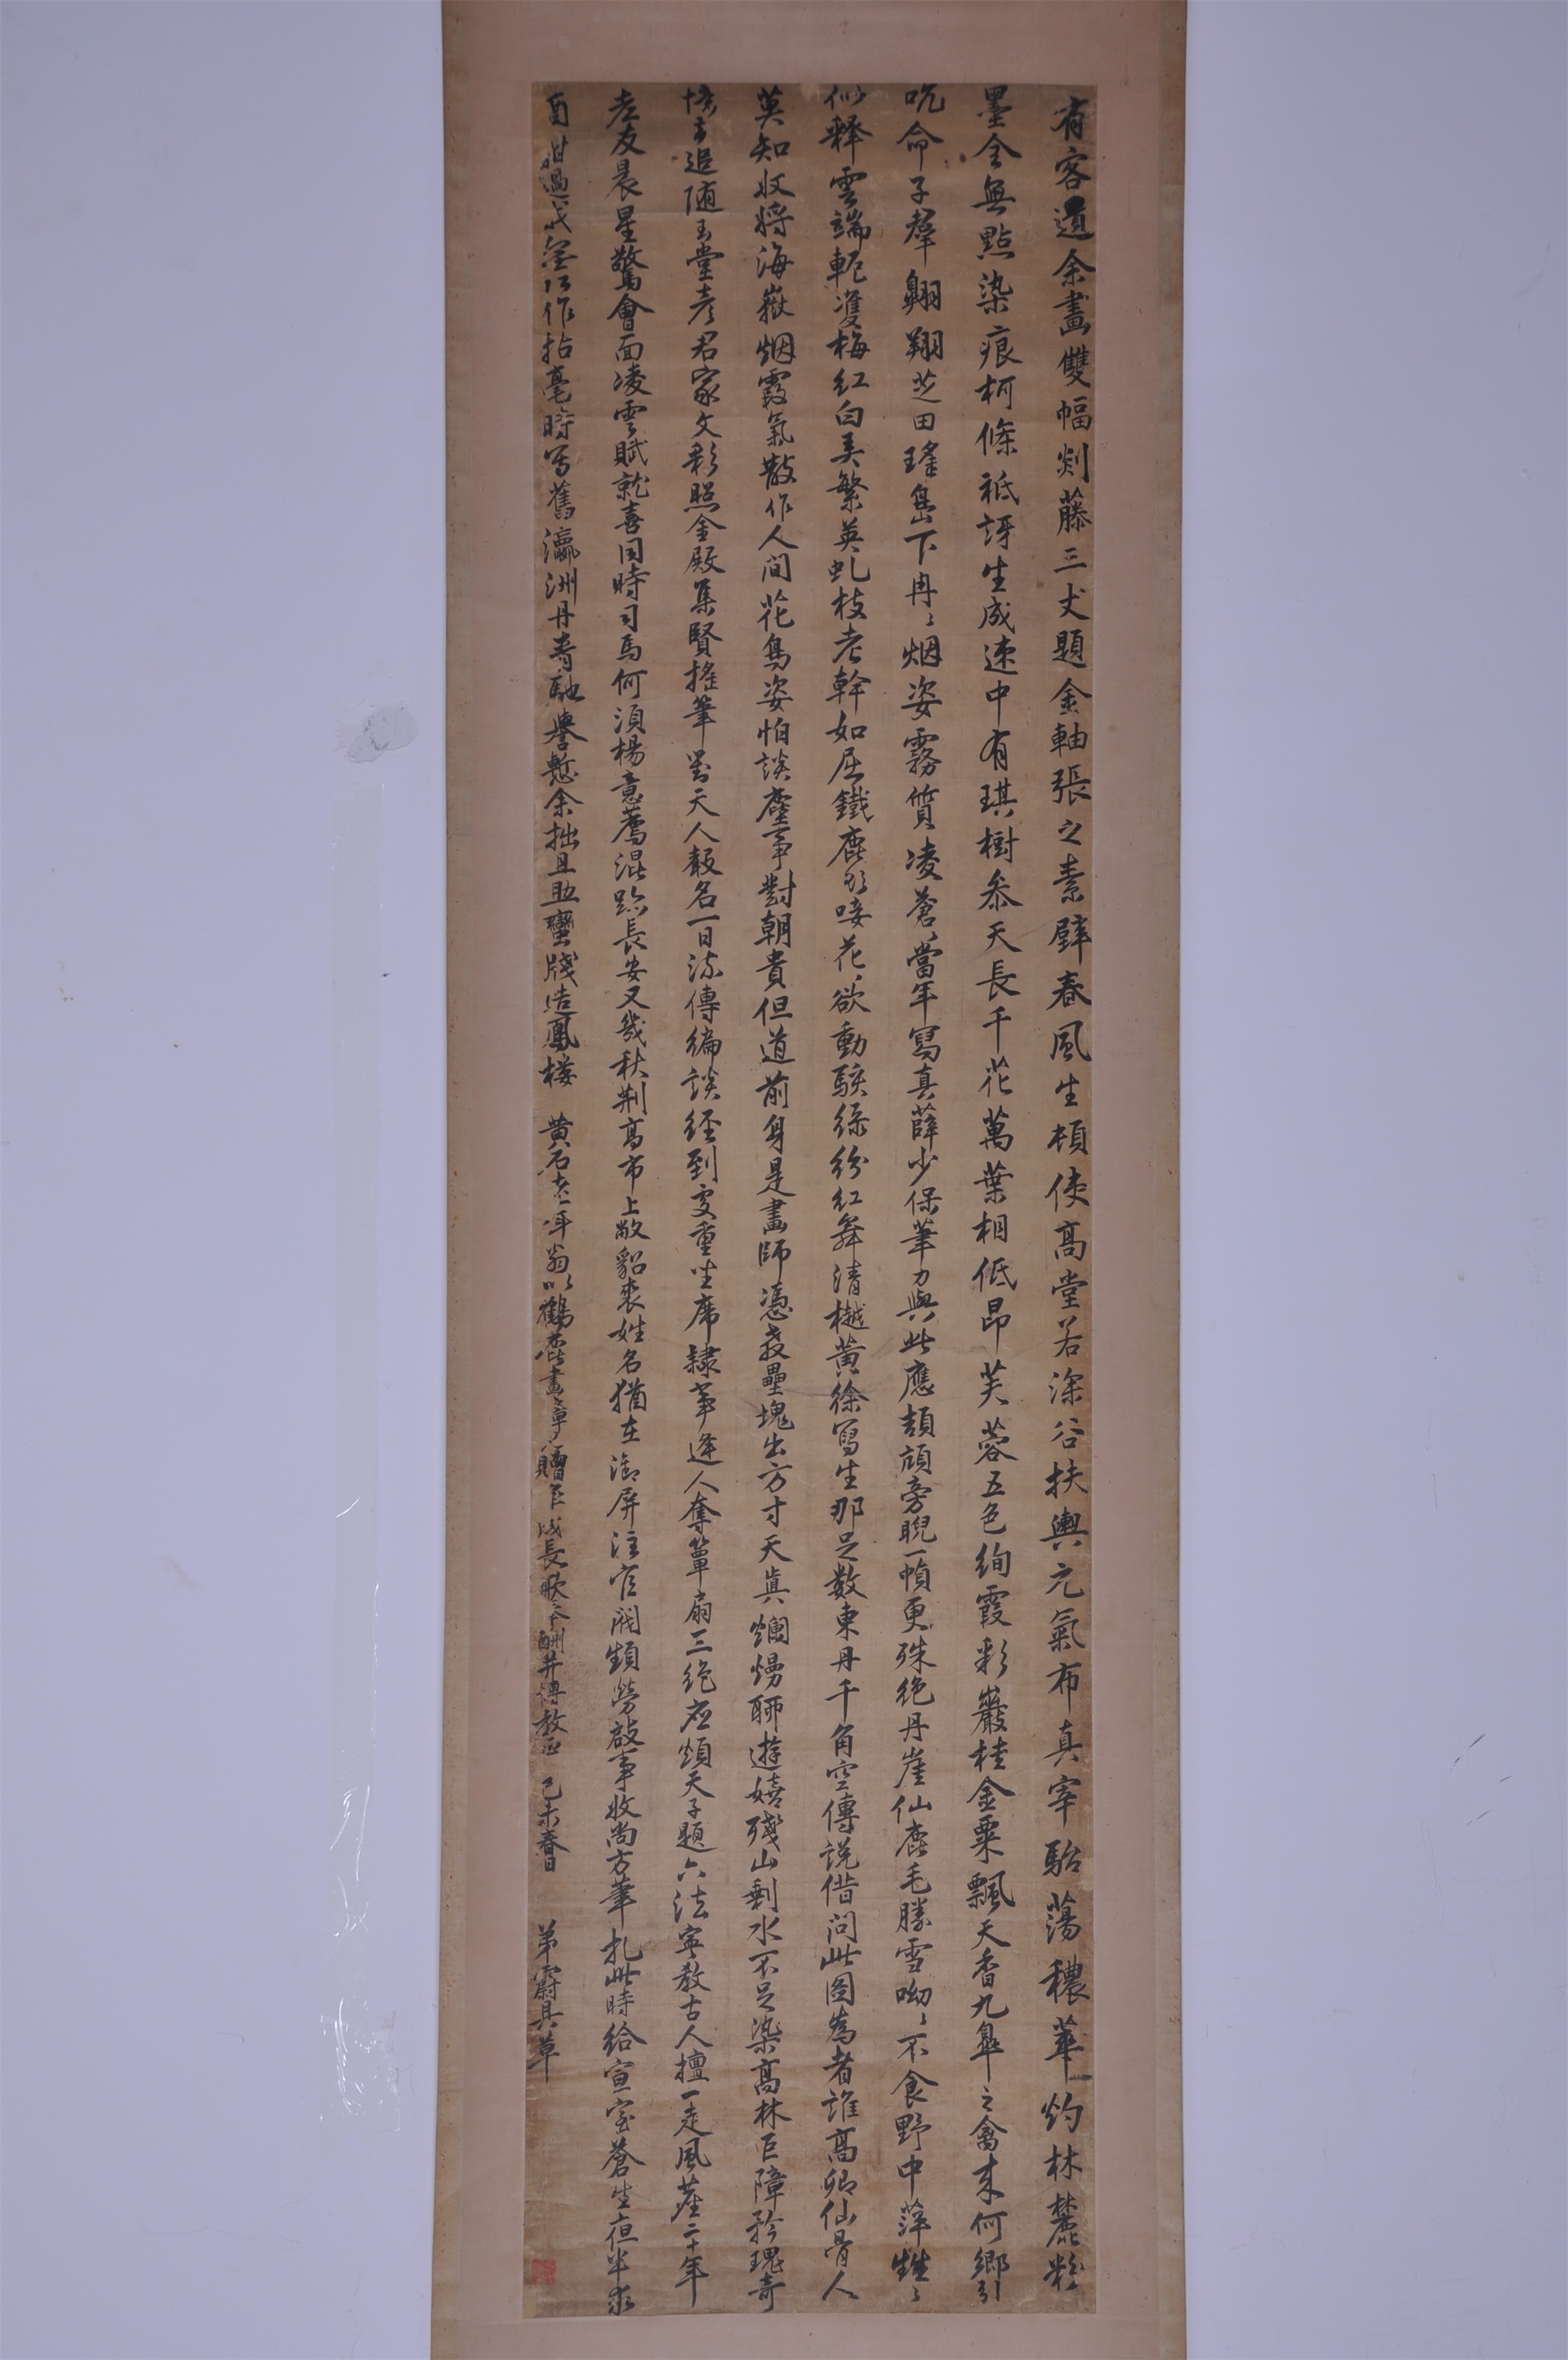 有客道余畫雙幅剡藤三丈題金軸張之素壁春風生頓使高堂若深谷扶輿元氣布真宰駘蕩穠華灼林麓粉
墨全無點染痕柯條祇訝生成速中有琪樹參天長千花萬葉相低昂芙蓉五色絢霞彩巖桂金粟飄天香九皋之禽來何鄉引
吭命子群翱翔芝田瑤島下冉冉烟姿霧質凌蒼蒼當年寫真薛少保筆力與此應頡頏旁睨一幀更殊絶丹崖仙鹿毛勝雪呦呦不食野中萍甡甡
似釋雲端軛雙梅紅白弄繁英虬枝老幹如屈鐵鹿欲唼花花欲動駁綠紛紅舞清樾黄徐寫生那足數東丹千角空傳説借問此圖為者誰高卿仙骨人
莫知收將海嶽烟霞氣散作人間花鳥姿怕談塵事對朝貴但道前身是畫師憑教壘塊出方寸天真爛熳聊遊嬉殘山剩水不足染高林巨障矜瑰奇
憶昔追隨玉堂彦君家文彩照金殿集賢搖筆對天人聲名一日流傳徧談經到處重坐席隸事逢人奪簟扇三絶應煩天子題六法寧教古人擅一走風塵二十年
老友晨星驚會面凌雲賦就喜同時司馬何須楊意薦混跡長安又幾秋荆高市上敝貂裘姓名猶在御屏注官閥頻勞啟事收尚方筆札此時給宣室蒼生夜半求
酉甜過我無所作拈毫時写舊瀛洲丹青馳譽慙余拙且助蠻牋造鳳樓 黄石老年翁以鶴鹿畫障見贈作長歌奉酬并博教正 己未春日 弟霨具草